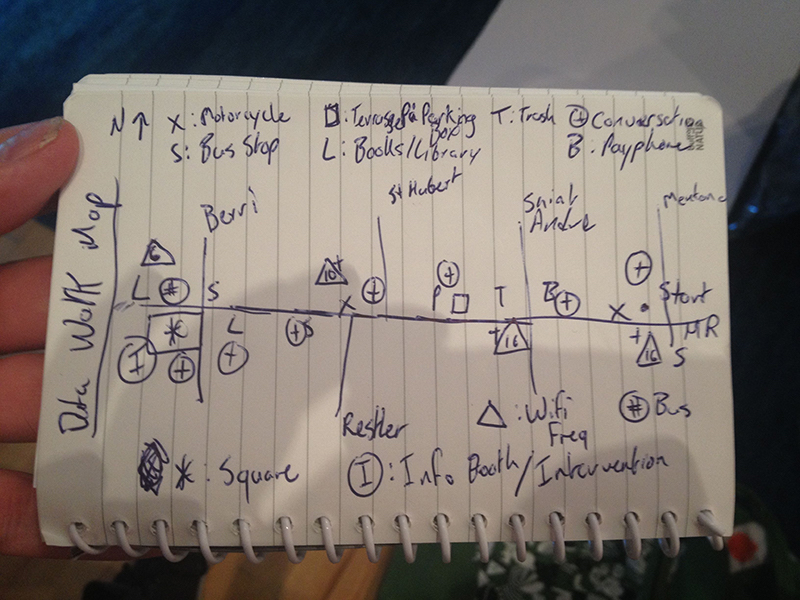 Data Walk Map
N ↑ X: Motorcycle
S: Bus Stop
Parking Box
L: Books/Library
T: Trash
⊕ Conversation
B: Payphone
Berri
St Hubert
Saint Andre
Mentana
6
L # S
10+
X + + P T B + X + Start
MR
* L + S
I + +
+16
+16 S
Restler
△: Wifi Freq
# Bus
*: Square
I: Info Booth/Intervention